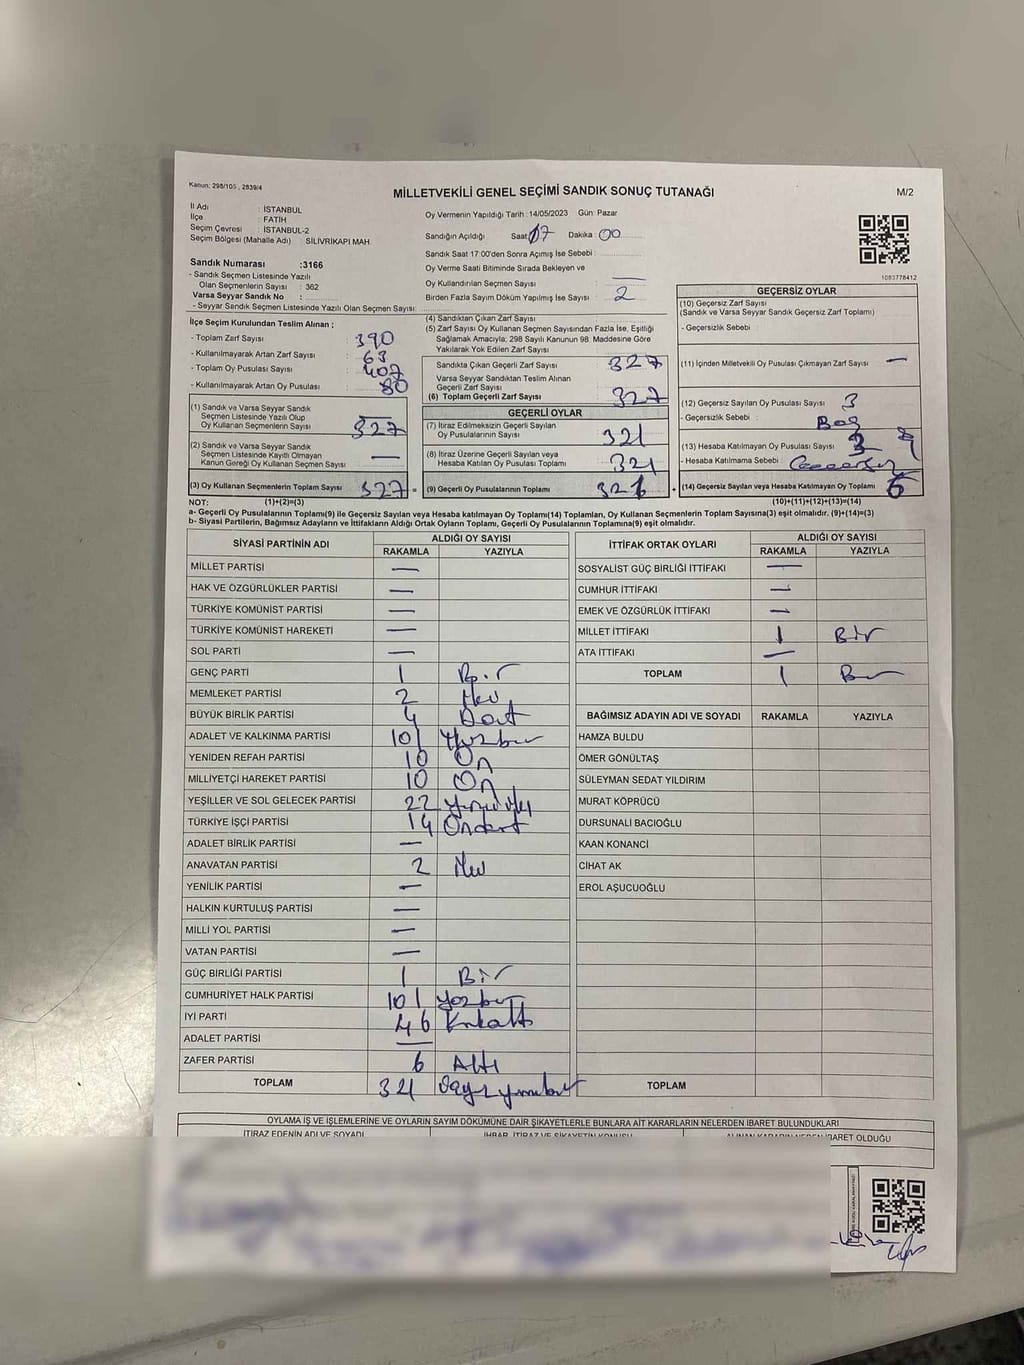 Kanun: 298/105 , 2839/4
MİLLETVEKİLİ GENEL SEÇİMİ SANDIK SONUÇ TUTANAĞI
M/2
İl Adı : İSTANBUL
İlçe : FATİH
Seçim Çevresi : İSTANBUL-2
Seçim Bölgesi (Mahalle Adı) : SİLİVRİKAPI MAH.
Oy Vermenin Yapıldığı Tarih :14/05/2023 Gün: Pazar
Sandığın Açıldığı Saat: 17 Dakika: 00
Sandık Saat 17:00'den Sonra Açımış İse Sebebi :
Oy Verme Saati Bitiminde Sırada Bekleyen ve
Oy Kullandırılan Seçmen Sayısı : —
Birden Fazla Sayım Döküm Yapılmış İse Sayısı : 2
1083778412
Sandık Numarası :3166
- Sandık Seçmen Listesinde Yazılı
Olan Seçmenlerin Sayısı : 362
Varsa Seyyar Sandık No :
- Seyyar Sandık Seçmen Listesinde Yazılı Olan Seçmen Sayısı:
İlçe Seçim Kurulundan Teslim Alınan ;
- Toplam Zarf Sayısı : 390
- Kullanılmayarak Artan Zarf Sayısı : 63
- Toplam Oy Pusulası Sayısı : 407
- Kullanılmayarak Artan Oy Pusulası : 80
(1) Sandık ve Varsa Seyyar Sandık
Seçmen Listesinde Yazılı Olup
Oy Kullanan Seçmenlerin Sayısı 327
(2) Sandık ve Varsa Seyyar Sandık
Seçmen Listesinde Kayıtlı Olmayan
Kanun Gereği Oy Kullanan Seçmen Sayısı —
(3) Oy Kullanan Seçmenlerin Toplam Sayısı 327 =
(4) Sandıktan Çıkan Zarf Sayısı :
(5) Zarf Sayısı Oy Kullanan Seçmen Sayısından Fazla İse, Eşitliği
Sağlamak Amacıyla; 298 Sayılı Kanunun 98. Maddesine Göre
Yakılarak Yok Edilen Zarf Sayısı
Sandıkta Çıkan Geçerli Zarf Sayısı 327
Varsa Seyyar Sandıktan Teslim Alınan
Geçerli Zarf Sayısı
(6) Toplam Geçerli Zarf Sayısı 327
GEÇERLİ OYLAR
(7) İtiraz Edilmeksizin Geçerli Sayılan
Oy Pusulalarının Sayısı 321
(8) İtiraz Üzerine Geçerli Sayılan veya
Hesaba Katılan Oy Pusulası Toplamı 321
(9) Geçerli Oy Pusulalarının Toplamı 321 +
GEÇERSİZ OYLAR
(10) Geçersiz Zarf Sayısı
(Sandık ve Varsa Seyyar Sandık Geçersiz Zarf Toplamı)
- Geçersizlik Sebebi :
(11) İçinden Milletvekili Oy Pusulası Çıkmayan Zarf Sayısı —
(12) Geçersiz Sayılan Oy Pusulası Sayısı 3
- Geçersizlik Sebebi : Boş
(13) Hesaba Katılmayan Oy Pusulası Sayısı 3
- Hesaba Katılmama Sebebi : Geçersiz
(14) Geçersiz Sayılan veya Hesaba Katılmayan Oy Toplamı 6
NOT: (1)+(2)=(3) (10)+(11)+(12)+(13)=(14)
a- Geçerli Oy Pusulalarının Toplamı(9) ile Geçersiz Sayılan veya Hesaba katılmayan Oy Toplamı(14) Toplamları, Oy Kullanan Seçmenlerin Toplam Sayısına(3) eşit olmalıdır. (9)+(14)=(3)
b- Siyasi Partilerin, Bağımsız Adayların ve İttifakların Aldığı Ortak Oyların Toplamı, Geçerli Oy Pusulalarının Toplamına(9) eşit olmalıdır.
SİYASİ PARTİNİN ADI ALDIĞI OY SAYISI
RAKAMLA YAZIYLA
MİLLET PARTİSİ —
HAK VE ÖZGÜRLÜKLER PARTİSİ —
TÜRKİYE KOMÜNİST PARTİSİ —
TÜRKİYE KOMÜNİST HAREKETİ —
SOL PARTİ —
GENÇ PARTİ 1 Bir
MEMLEKET PARTİSİ 2 İki
BÜYÜK BİRLİK PARTİSİ 4 Dört
ADALET VE KALKINMA PARTİSİ 101 Yüzbir
YENİDEN REFAH PARTİSİ 10 On
MİLLİYETÇİ HAREKET PARTİSİ 10 On
YEŞİLLER VE SOL GELECEK PARTİSİ 22 Yirmiiki
TÜRKİYE İŞÇİ PARTİSİ 14 Ondört
ADALET BİRLİK PARTİSİ —
ANAVATAN PARTİSİ 2 İki
YENİLİK PARTİSİ —
HALKIN KURTULUŞ PARTİSİ —
MİLLİ YOL PARTİSİ —
VATAN PARTİSİ —
GÜÇ BİRLİĞİ PARTİSİ 1 Bir
CUMHURİYET HALK PARTİSİ 101 Yüzbir
İYİ PARTİ 46 Kırkaltı
ADALET PARTİSİ —
ZAFER PARTİSİ 6 Altı
TOPLAM 321 Üçyüzyirmibir
İTTİFAK ORTAK OYLARI ALDIĞI OY SAYISI
RAKAMLA YAZIYLA
SOSYALİST GÜÇ BİRLİĞİ İTTİFAKI —
CUMHUR İTTİFAKI —
EMEK VE ÖZGÜRLÜK İTTİFAKI —
MİLLET İTTİFAKI 1 Bir
ATA İTTİFAKI —
TOPLAM 1 Bir
BAĞIMSIZ ADAYIN ADI VE SOYADI RAKAMLA YAZIYLA
HAMZA BULDU
ÖMER GÖNÜLTAŞ
SÜLEYMAN SEDAT YILDIRIM
MURAT KÖPRÜCÜ
DURSUNALİ BACIOĞLU
KAAN KONANCİ
CİHAT AK
EROL AŞUCUOĞLU
TOPLAM
OYLAMA İŞ VE İŞLEMLERİNE VE OYLARIN SAYIM DÖKÜMÜNE DAİR ŞİKAYETLERLE BUNLARA AİT KARARLARIN NELERDEN İBARET BULUNDUKLARI
İTİRAZ EDENİN ADI VE SOYADI İHBAR, İTİRAZ VE ŞİKAYETİN KONUSU